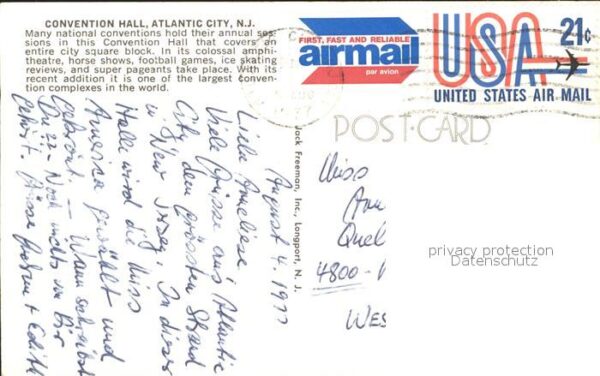 CONVENTION HALL, ATLANTIC CITY, N.J.
Many national conventions hold their annual ses-
sions in this Convention Hall that covers an
entire city square block. In its colossal amphi-
theatre, horse shows, football games, ice skating
reviews, and super pageants take place. With its
recent addition it is one of the largest conven-
tion complexes in the world.
FIRST, FAST AND RELIABLE
airmail
par avion
USA 21c
UNITED STATES AIR MAIL
POSTCARD
Jack Freeman, Inc., Longport, N. J.
August 4, 1977
Liebe Anneliese
Viele Grüsse aus Atlantic
City dem grössten Strand
in New Jersey. In dieser
Hall wird die Miss
America gewählt und
gekrönt. — Wann schreibst
Du — Noch nichts von Dir
gehört. Grüsse + Edith
Miss
Ann
Quel
4800-
WES
privacy protection
Datenschutz